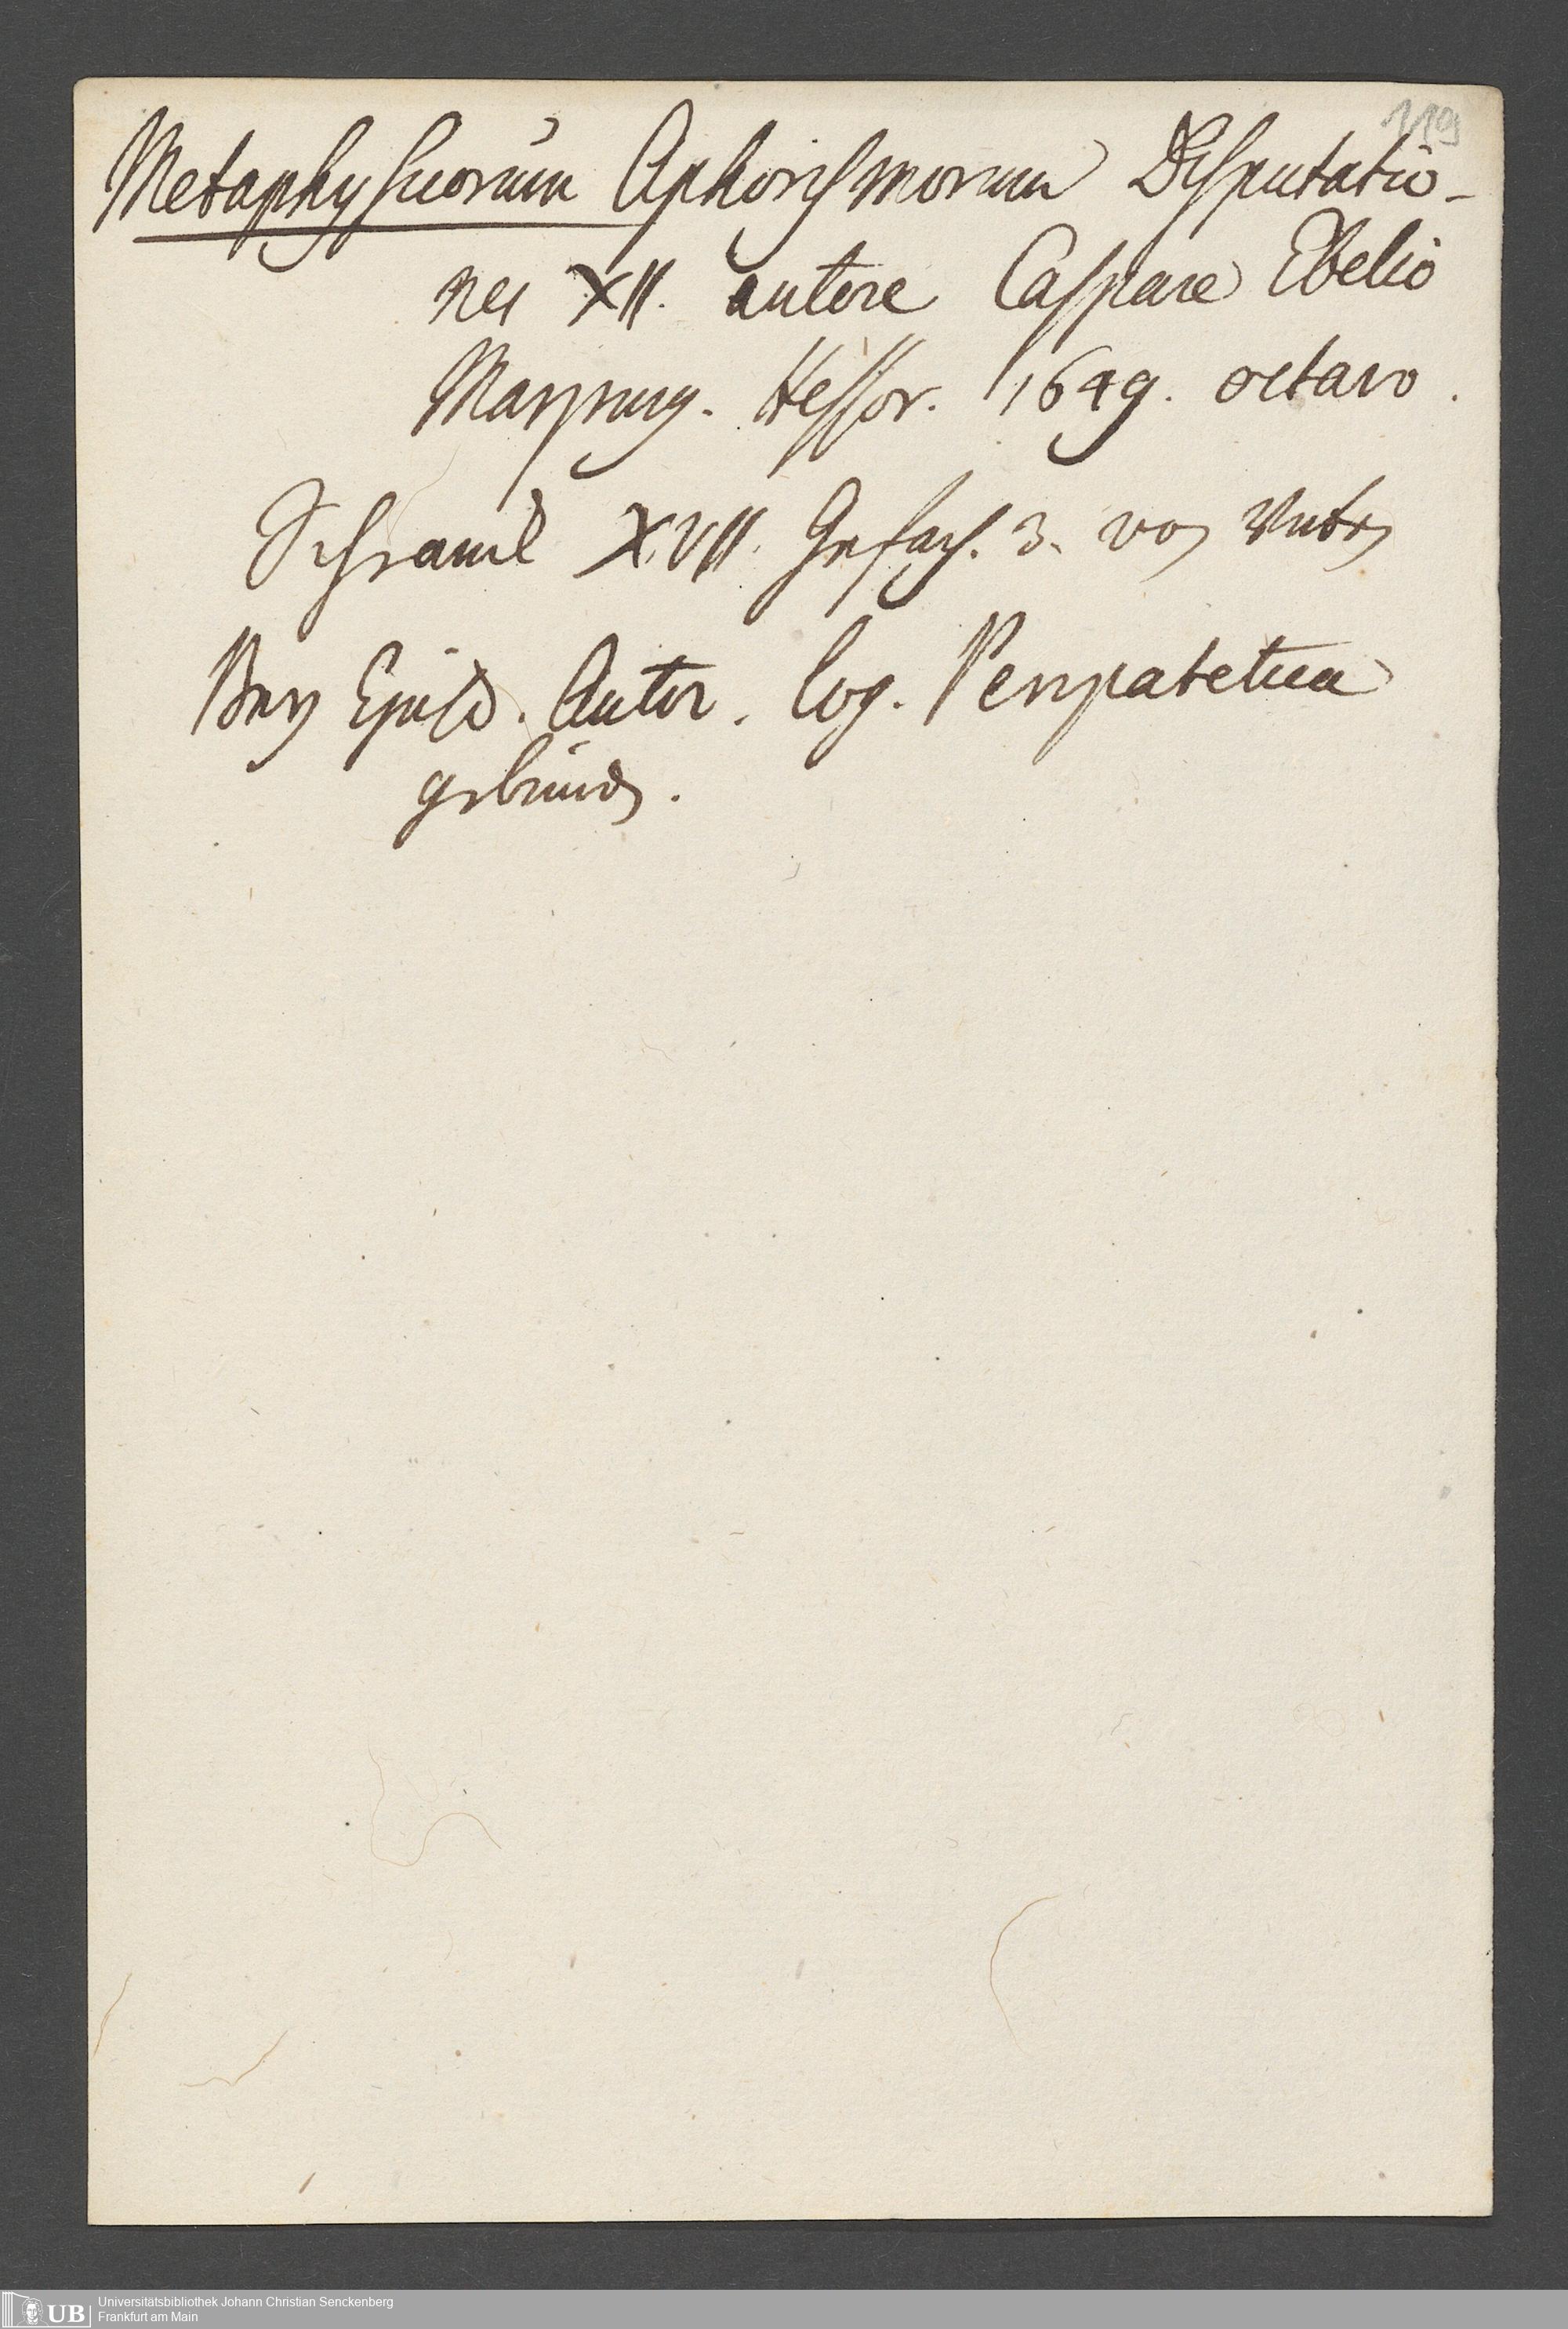 119
Metaphysicorum Aphorismorum Disputatio-
nes XII. autore Caspare Ebelio
Marpurg. Hessor. 1649. octavo.
Schranck XVII. Gefach. 3. von unten
Bey Ejusd. Autor. Log. Peripatetica
gebunden.
UB
Universitätsbibliothek Johann Christian Senckenberg
Frankfurt am Main